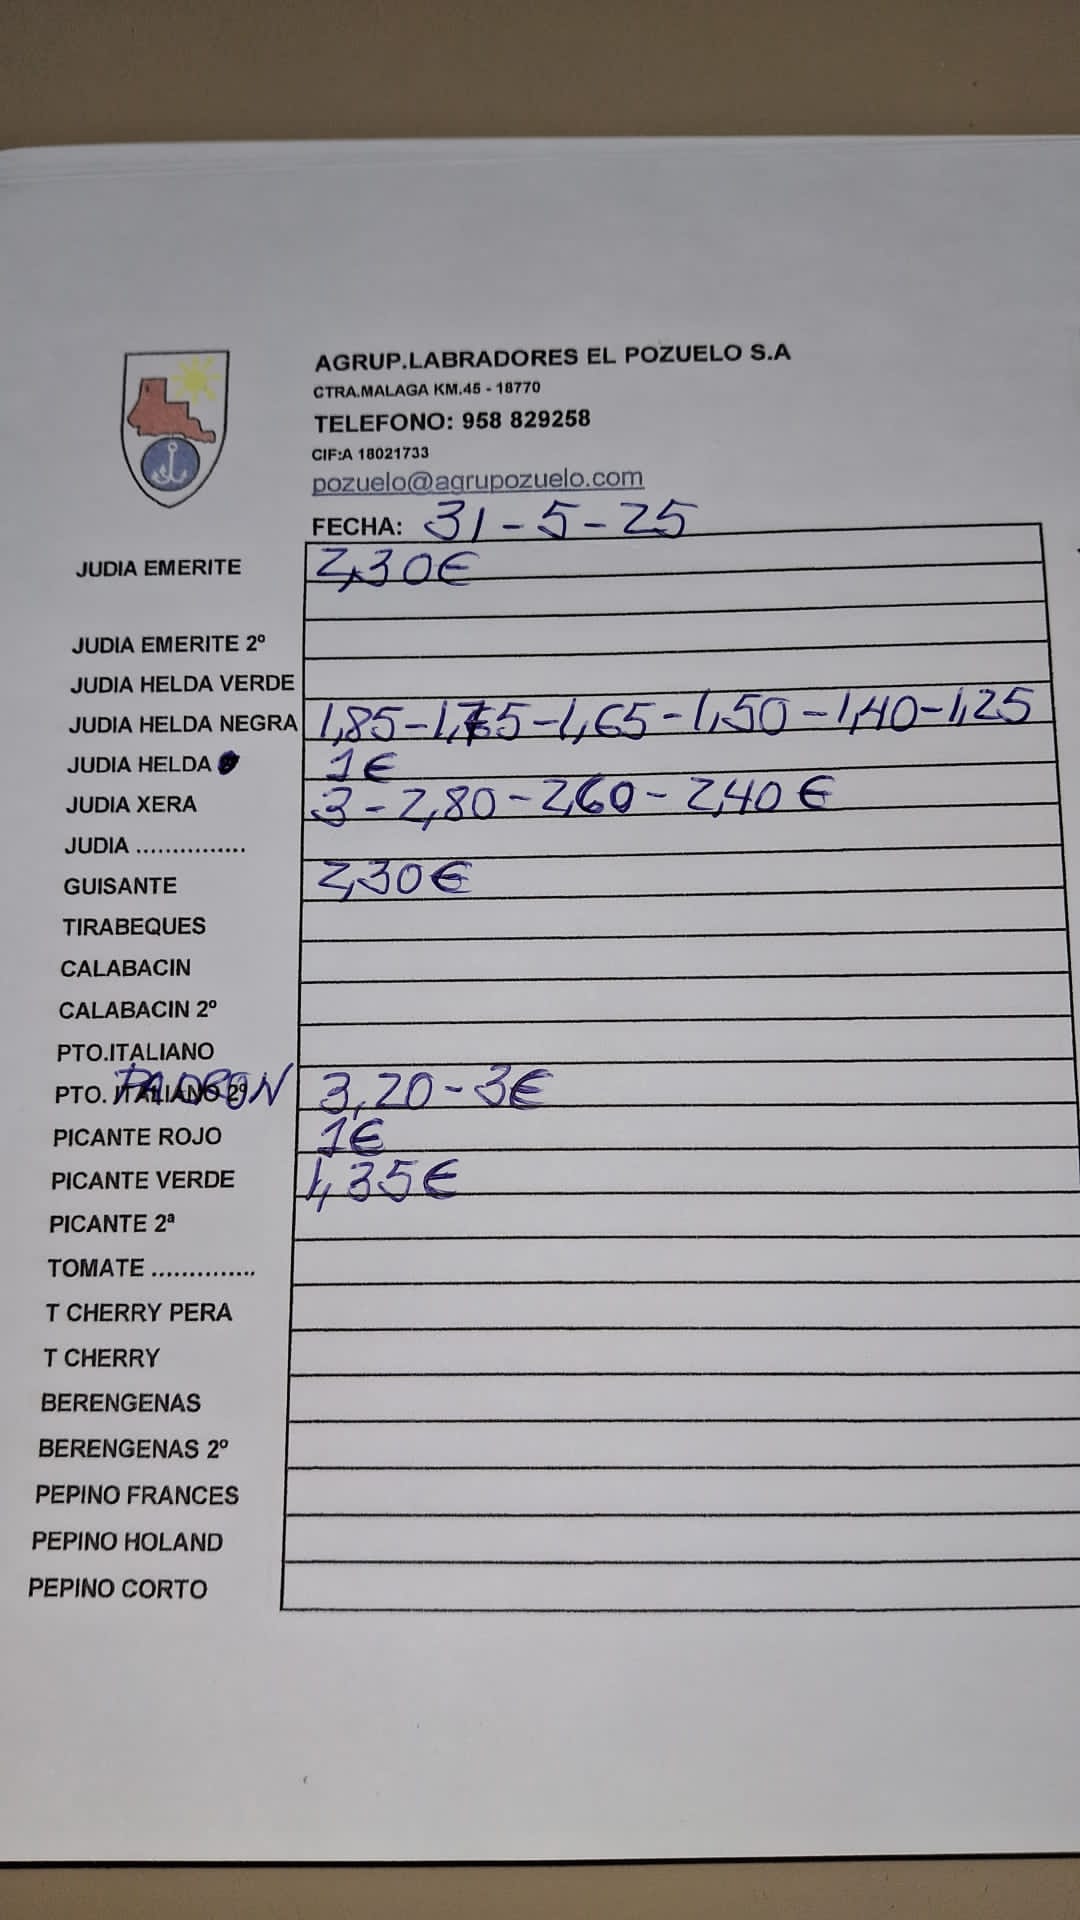 AGRUP.LABRADORES EL POZUELO S.A
CTRA.MALAGA KM.45 - 18770
TELEFONO: 958 829258
CIF:A 18021733
pozuelo@agrupozuelo.com
FECHA: 31-5-25
JUDIA EMERITE 2,30€
JUDIA EMERITE 2º
JUDIA HELDA VERDE
JUDIA HELDA NEGRA 1,85-1,75-1,65-1,50-1,40-1,25
JUDIA HELDA 1€
JUDIA XERA 3-2,80-2,60-2,40€
JUDIA ...............
GUISANTE 2,30€
TIRABEQUES
CALABACIN
CALABACIN 2º
PTO.ITALIANO
PTO. ITALIANO 2º PADRON 3,20-3€
PICANTE ROJO 1€
PICANTE VERDE 1,35€
PICANTE 2ª
TOMATE ..............
T CHERRY PERA
T CHERRY
BERENGENAS
BERENGENAS 2º
PEPINO FRANCES
PEPINO HOLAND
PEPINO CORTO